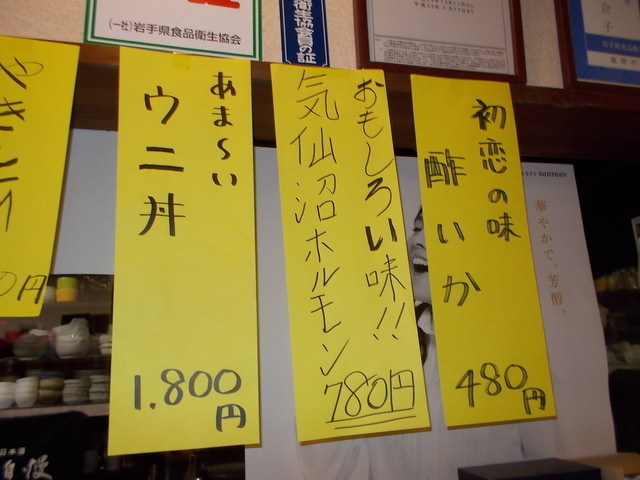 (一社)岩手県食品衛生協会
衛生協会員の証
初恋の味
酢いか
480円
おもしろい味!!
気仙沼ホルモン
780円
あま〜い
ウニ丼
1.800円
円
SUNTORY
華やかで、芳醇。
日本酒
自慢